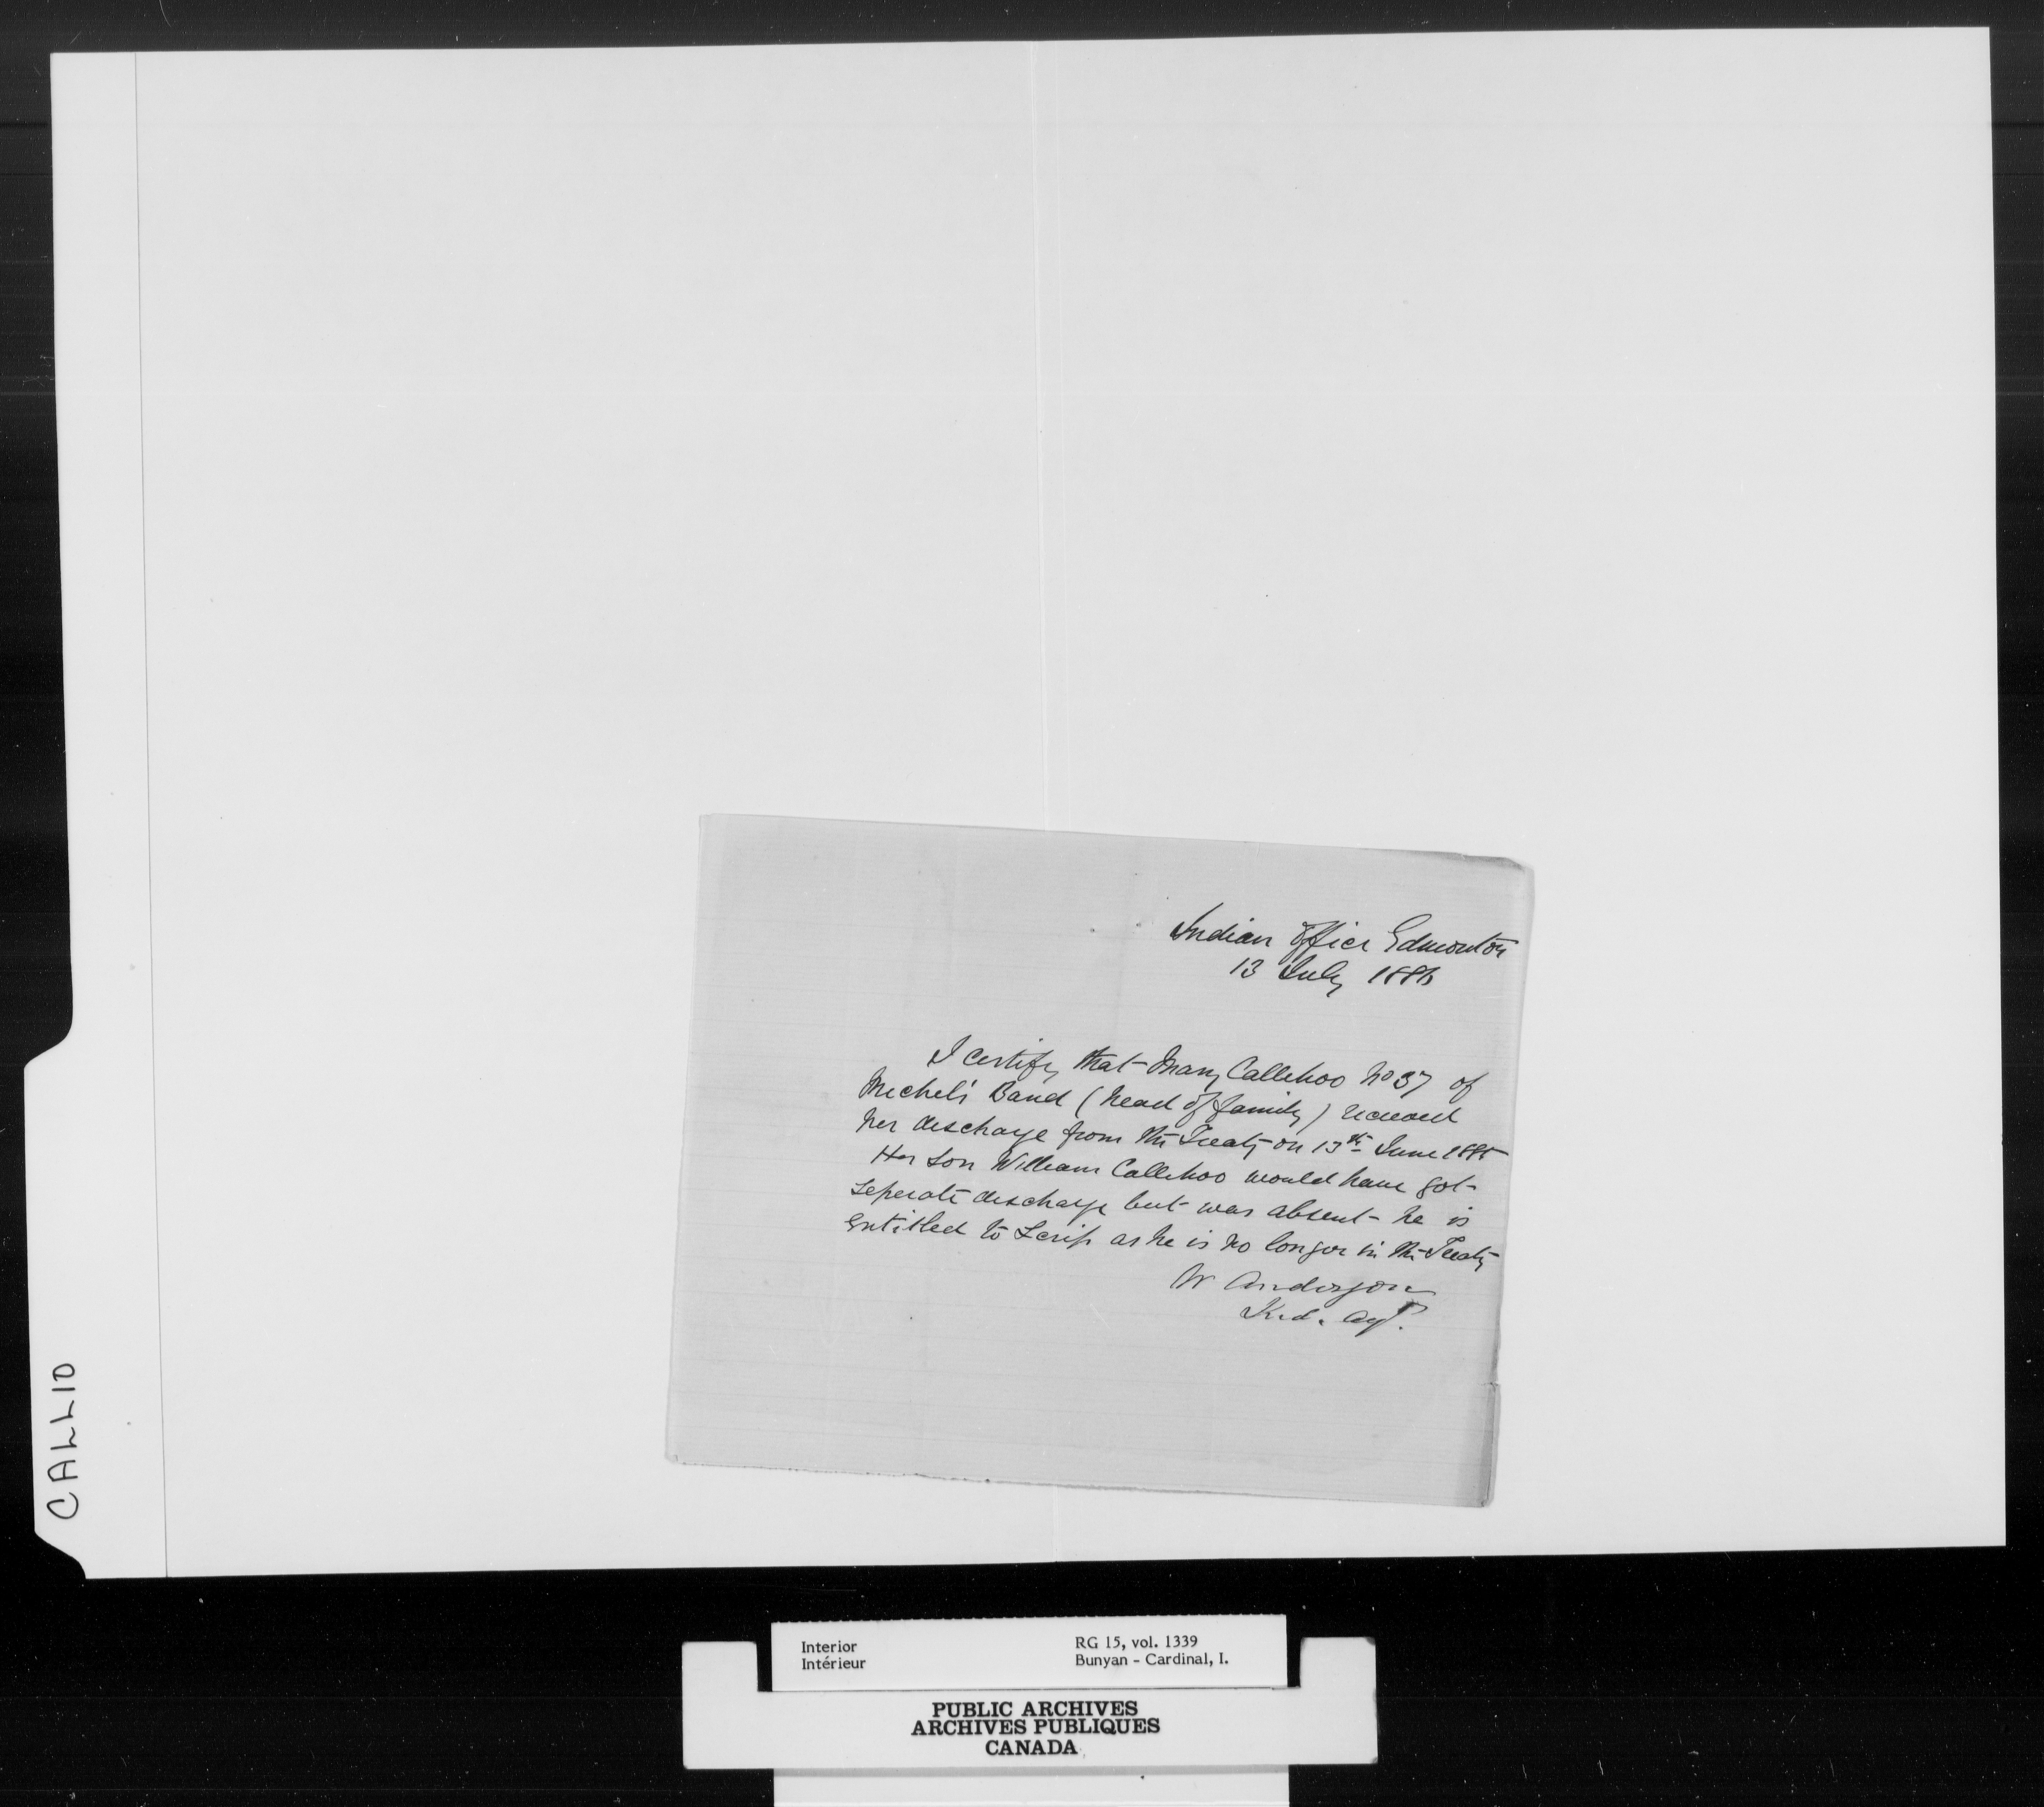 Indian Office Edmonton
13 July 1886
I certify that Mary Callihoo No 37 of
Michel's Band (head of family) received
her discharge from the Treaty on 13th June 1885
Her son William Callihoo would have got
seperate discharge but was absent - he is
entitled to Scrip as he is no longer in the Treaty
W Anderson
Ind. Agt.
CALLIO
Interior
Intérieur
RG 15, vol. 1339
Bunyan - Cardinal, I.
PUBLIC ARCHIVES
ARCHIVES PUBLIQUES
CANADA